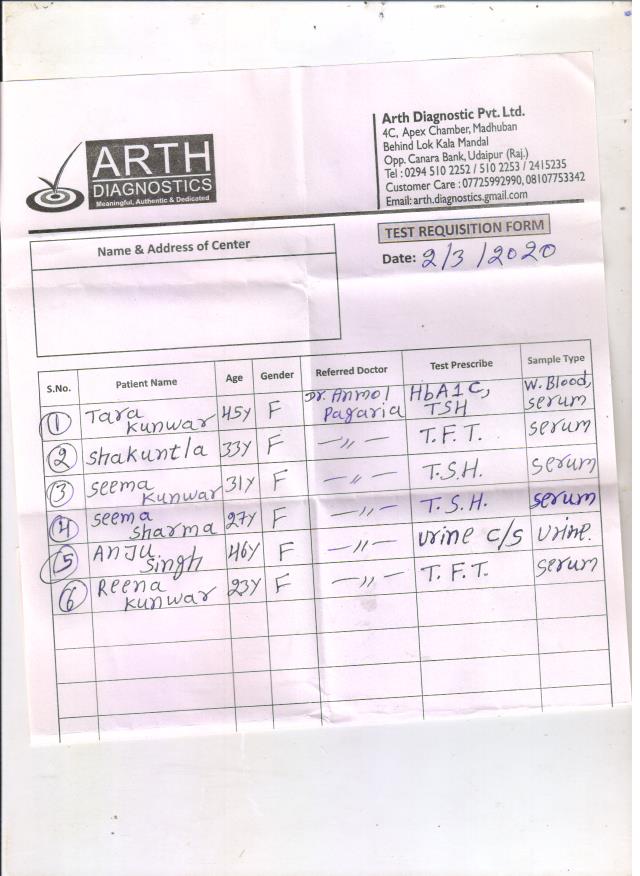 ARTH
DIAGNOSTICS
Meaningful, Authentic & Dedicated
Arth Diagnostic Pvt. Ltd.
4C, Apex Chamber, Madhuban
Behind Lok Kala Mandal
Opp. Canara Bank, Udaipur (Raj.)
Tel : 0294 510 2252 / 510 2253 / 2415235
Customer Care : 07725992990, 08107753342
Email: arth.diagnostics.gmail.com
Name & Address of Center
TEST REQUISITION FORM
Date: 2/3/2020
S.No. Patient Name Age Gender Referred Doctor Test Prescribe Sample Type
1 Tara Kunwar 45y F Dr. Anmol Pagaria HbA1C, TSH W. Blood, serum
2 Shakuntla 33y F —〃— T.F.T. serum
3 Seema Kunwar 31y F —〃— T.S.H. serum
4 Seema Sharma 27y F —〃— T.S.H. serum
5 ANJU Singh 46y F —〃— Urine c/s Urine.
6 Reena Kunwar 23y F —〃— T.F.T. serum